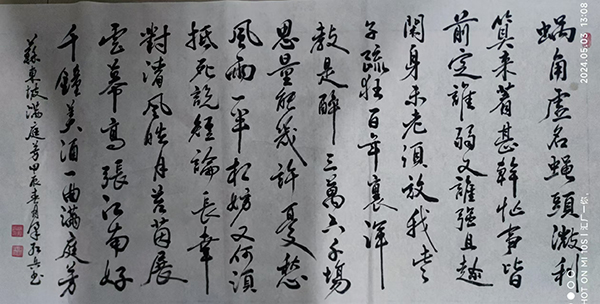 蝸角虛名蠅頭微利
算来著甚幹忙事皆
前定誰弱又誰强且趁
閑身未老須放我些
子疏狂百年裏渾
教是醉三萬六千場
思量能幾許憂愁
風雨一半相妨又何須
抵死説短論長幸
對清風皓月苔茵展
雲幕高張江南好
千鐘美酒一曲滿庭芳
蘇東坡滿庭芳甲辰春月
2024.05.03 13:08